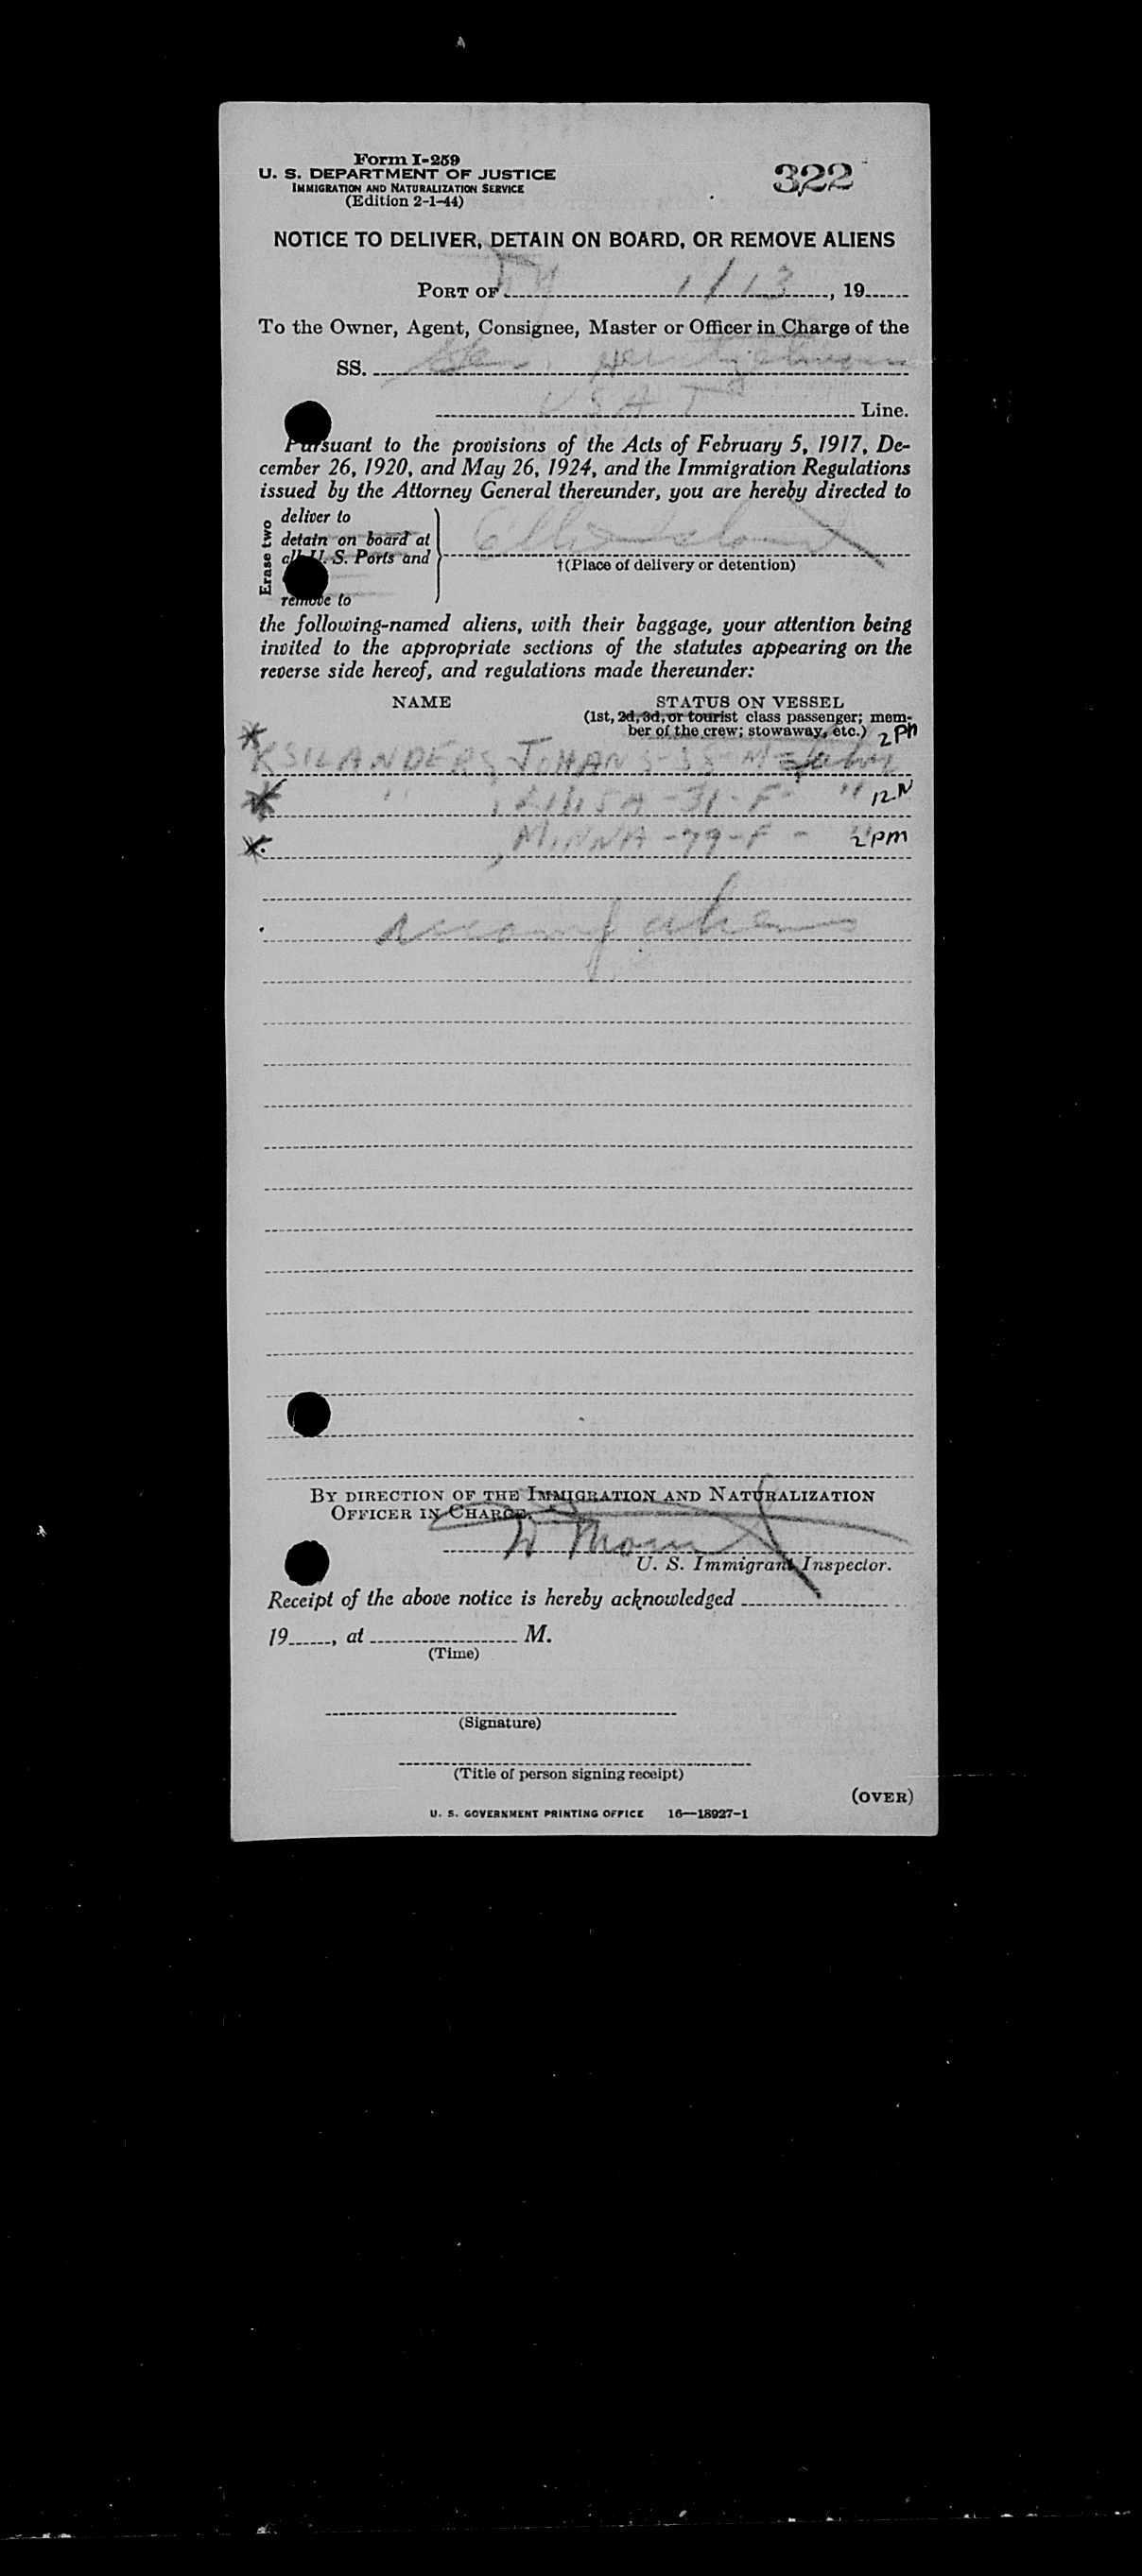 Form I-259
U. S. DEPARTMENT OF JUSTICE
IMMIGRATION AND NATURALIZATION SERVICE
(Edition 2-1-44)
322
NOTICE TO DELIVER, DETAIN ON BOARD, OR REMOVE ALIENS
PORT OF NY 1/13, 19
To the Owner, Agent, Consignee, Master or Officer in Charge of the
SS.
USAT Line.
Pursuant to the provisions of the Acts of February 5, 1917, De-
cember 26, 1920, and May 26, 1924, and the Immigration Regulations
issued by the Attorney General thereunder, you are hereby directed to
Erase two
deliver to
detain on board at
all U. S. Ports and
remove to
Ellis Island
†(Place of delivery or detention)
the following-named aliens, with their baggage, your attention being
invited to the appropriate sections of the statutes appearing on the
reverse side hereof, and regulations made thereunder:
NAME STATUS ON VESSEL
(1st, 2d, 3d, or tourist class passenger; mem-
ber of the crew; stowaway, etc.) 2 PM
SILANDERS, JOHAN
" - 31 - F - " 12 N
, MINNA - 79 - F - " 2 PM
accomp aliens
BY DIRECTION OF THE IMMIGRATION AND NATURALIZATION
OFFICER IN CHARGE.
U. S. Immigrant Inspector.
Receipt of the above notice is hereby acknowledged
19, at M.
(Time)
(Signature)
(Title of person signing receipt)
(OVER)
U. S. GOVERNMENT PRINTING OFFICE 16—18927-1